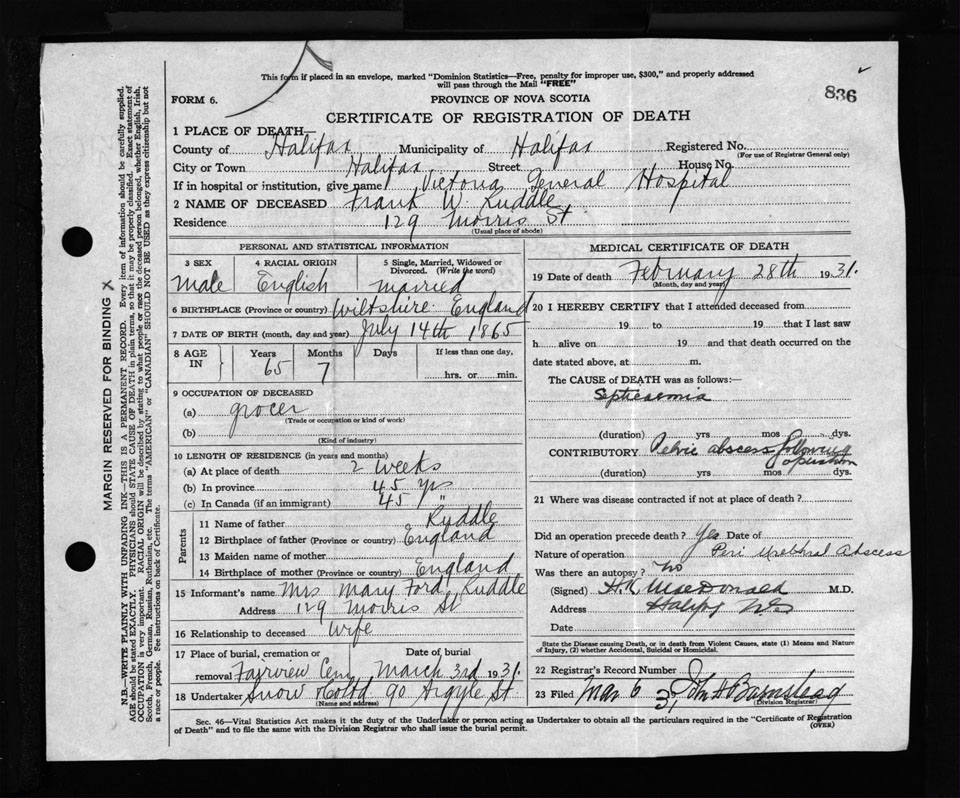 This form if placed in an envelope, marked "Dominion Statistics—Free, penalty for improper use, $300," and properly addressed
will pass through the Mail "FREE"
836
FORM 6.
PROVINCE OF NOVA SCOTIA
CERTIFICATE OF REGISTRATION OF DEATH
1 PLACE OF DEATH—
County of Halifax Municipality of Halifax Registered No.
(For use of Registrar General only)
City or Town Halifax Street House No.
If in hospital or institution, give name Victoria General Hospital
2 NAME OF DECEASED Frank W. Ruddle
Residence 129 Morris St
(Usual place of abode)
PERSONAL AND STATISTICAL INFORMATION
3 SEX 4 RACIAL ORIGIN 5 Single, Married, Widowed or
Divorced. (Write the word)
Male English Married
6 BIRTHPLACE (Province or country) Wiltshire England
7 DATE OF BIRTH (month, day and year) July 14th 1865
8 AGE IN Years Months Days If less than one day,
65 7 hrs. or min.
9 OCCUPATION OF DECEASED
(a) grocer
(Trade or occupation or kind of work)
(b)
(Kind of industry)
10 LENGTH OF RESIDENCE (in years and months)
(a) At place of death 2 weeks
(b) In province 45 yrs
(c) In Canada (if an immigrant) 45 "
Parents
11 Name of father Ruddle
12 Birthplace of father (Province or country) England
13 Maiden name of mother
14 Birthplace of mother (Province or country) England
15 Informant's name Mrs Mary Ford Ruddle
Address 129 Morris St
16 Relationship to deceased wife
17 Place of burial, cremation or Date of burial
removal Fairview Cem March 3rd 1931.
18 Undertaker Snow & Co Ltd 90 Argyle St
(Name and address)
MEDICAL CERTIFICATE OF DEATH
19 Date of death February 28th 1931.
(Month, day and year)
20 I HEREBY CERTIFY that I attended deceased from
19 to 19 that I last saw
h alive on 19 and that death occurred on the
date stated above, at m.
The CAUSE of DEATH was as follows:—
Septicaemia
(duration) yrs mos dys.
CONTRIBUTORY Pelvic abscess following
operation
(duration) yrs mos dys.
21 Where was disease contracted if not at place of death?
Did an operation precede death? Yes Date of
Nature of operation Peri Urethral Abscess
Was there an autopsy? No
(Signed) H.K. MacDonald M.D.
Address Halifax N.S
Date
State the Disease causing Death, or in death from Violent Causes, state (1) Means and Nature
of Injury, (2) whether Accidental, Suicidal or Homicidal.
22 Registrar's Record Number
23 Filed Mar 6 31 John H Barnstead
(Division Registrar)
Sec. 46—Vital Statistics Act makes it the duty of the Undertaker or person acting as Undertaker to obtain all the particulars required in the "Certificate of Registration
of Death" and to file the same with the Division Registrar who shall issue the burial permit.
(OVER)
MARGIN RESERVED FOR BINDING X
N.B.—WRITE PLAINLY WITH UNFADING INK—THIS IS A PERMANENT RECORD. Every item of information should be carefully supplied.
AGE should be stated EXACTLY. PHYSICIANS should STATE CAUSE OF DEATH in plain terms, so that it may be properly classified. Exact statement of
OCCUPATION is very important. RACIAL ORIGIN will be described by stating to what people or race the deceased person belonged, whether English, Irish,
Scotch, French, German, Russian, Ruthenian, etc. The terms "AMERICAN" or "CANADIAN" SHOULD NOT BE USED as they express citizenship but not
a race or people. See instructions on back of Certificate.